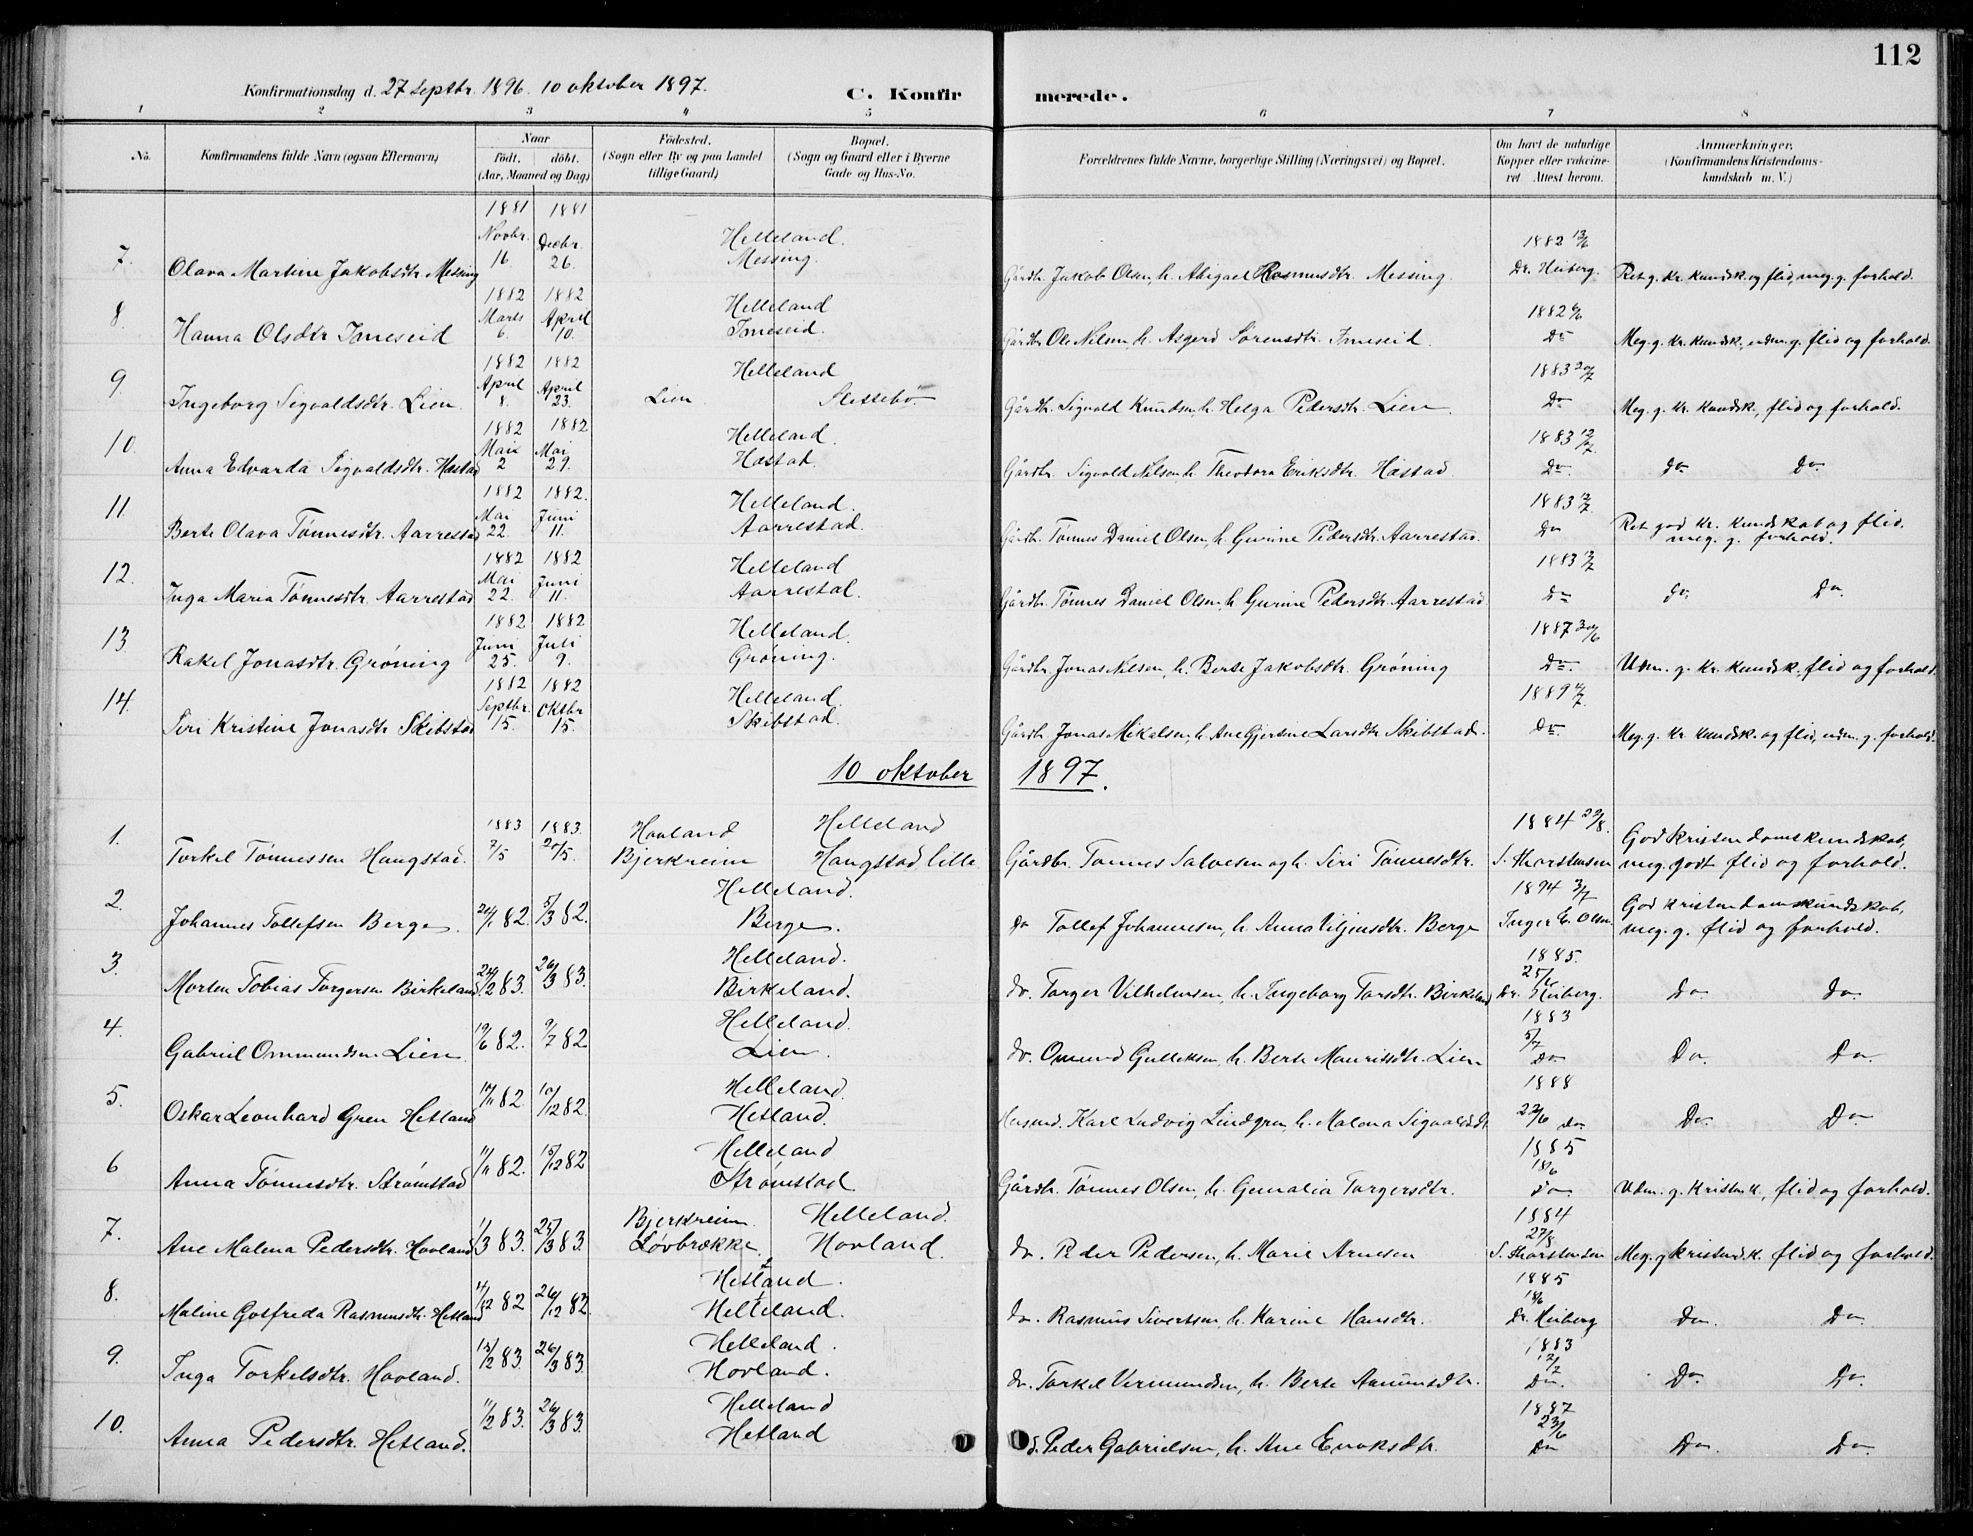 112
Konfirmationsdag d. 27 Septbr. 1896. 10 oktober 1897.
C. Konfirmerede.
1 2 3 4 5 6 7 8
No.
Konfirmandens fulde Navn (ogsaa Efternavn)
Naar
født. døbt.
(Aar, Maaned og Dag)
Fødested.
(Sogn eller By og paa Landet
tillige Gaard)
Bopæl.
(Sogn og Gaard eller i Byerne
Gade og Hus-No.
Forældrenes fulde Navne, borgerlige Stilling (Næringsvei) og Bopæl.
Om havt de naturlige
Kopper eller vakcine-
ret. Attest herom.
Anmærkninger.
(Konfirmandens Kristendoms-
kundskab m. V.)
1881 1881
Novbr. Decbr. Helleland. 1882 13/6
7. Olava Martine Jakobsdtr. Messing 16. 26. Messing. Gårdbr. Jakob Olsen, h. Abigael Rasmusdtr. Messing. Dr. Heiberg. Ret g. kr. kundsk. og flid, meg. g. forhold.
1882 1882
Marts April Helleland 1882 6/6
8. Hanna Olsdtr Imeseid 6. 10. Imeseid. Gårdbr. Ole Nilsen, h. Asgerd Sørensdtr. Imeseid. Do Meg. g. kr. kundsk., udm. g. flid og forhold.
1882 1882
April April Helleland 1883 20/7
9 Ingeborg Sigvaldsdtr. Lien. 8. 23. Lien. Slettebø. Gårdbr. Sigvald Knudsen h. Helga Pedersdtr. Lien. Do Meg. g. kr. kundsk., flid og forhold.
1882 1882
Mai Mai Helleland. 1883 12/7.
10. Anna Edvarda Sigvaldsdtr. Hæstad 2 29. Hæstad. Gårdbr. Sigvald Nilsen h. Theodora Eriksdtr. Hæstad Do. do do.
1882 1882.
Mai Juni Helleland. 1883 12/7
11. Berte Olava Tønnesdtr. Aarrestad 22. 11. Aarrestad. Gårdbr. Tønnes Daniel Olsen, h. Gurine Pedersdtr. Aarrestad. Do Ret god kr. kundskab og flid.
meg. g. forhold.
1882 1882
Mai Juni Helleland 1883 12/7
12. Inga Maria Tønnesdtr. Aarrestad 22. 11. Aarrestad. Gårdbr. Tønnes Daniel Olsen, h. Gurine Pedersdtr. Aarrestad Do do. Do.
1882 1882
Juni Juli Helleland. 1887 30/6
13. Rakel Jonasdtr. Grøning 25. 9. Grøning. Gårdbr. Jonas Nilsen, h. Berte Jakobsdtr. Grøning Do. Udm. g. kr. kundsk., flid og forhold.
1882 1882
Septbr. Oktbr Helleland. 1889 4/7.
14. Siri Kristine Jonasdtr Skibstad 15. 15. Skibstad. Gårdbr. Jonas Mikalsen, h. Ane Gjersine Larsdtr Skibstad. Do. Meg. g. kr. kundsk. og flid, udm. g. forhold.
10 oktober 1897.
1883 1883. Hovland Helleland 1884 29/8. God kristendomskundskab,
1. Torkel Tønnessen Haugstad. 7/5 20/5. Bjerkreim Haugstad lille. Gårdbr. Tønnes Salvesen og h. Siri Tønnesdtr. S. Thorstensen meg. godt flid og forhold.
Helleland. 1894 3/7 God kristendomskundskab,
2. Johannes Tollefsen Berge. 20/1 82. 5/3 82. Berge. do Tollef Johannesen, h. Anna Viljensdtr. Berge Inger E. Olsen. meg. g. flid og forhold.
Helleland. 1885. 25/6
3. Morten Tobias Torgersen Birkeland 24/2 83. 26/3 83. Birkeland. do. Torger Vilhelmsen, h. Ingeborg Torsdtr. Birkeland Dr. Heiberg. Do. do.
Helleland. 1883 5/7
4. Gabriel Ommundsen Lien. 19/6 82. 9/7 82 Lien. do. Omund Gulleksen, h. Berte Mauritsdtr. Lien Do Do. Do.
Helleland. 1888
5. Oskar Leonhard Gren Hetland 12/11 82 10/12 82. Hetland. Husmd. Karl Ludvig Lindgren, h. Malena Sigvaldsdt. 22/6 do. Do. Do.
Helleland 1885 18/6
6 Anna Tønnesdtr. Strømstad 11/11 82. 15/12 82 Strømstad. Gårdbr. Tønnes Olsen, h. Gunalia Torgersdtr. do. Udm. g. kristensk., flid og forhold.
Bjerkreim. Helleland. 1884 27/8
7. Ane Malena Pedersdtr. Hovland 1/3 83. 25/3 83. Løvbrække. Hovland. do. Peder Pedersen, h. Marie Arnesen S. Thorstensen Meg. g kristendsk. flid og forhold.
Hetland. 1885 18/6
8. Maline Gotfreda Rasmusdtr. Hetland 14/12 82 26/12 82. Helleland. do. Rasmus Sivertsen, h. Karine Hansdtr. Dr. Heiberg Do. Do.
Helleland. 1883 12/7
9. Inga Torkelsdtr. Hovland. 15/2 83. 26/3 83. Hovland. do. Torkel Vermundsen, h. Berte Aanensdtr. Do. Do. Do.
Helleland 1887 23/6
10. Anna Pedersdtr. Hetland. 11/2 83. 26/3 83. Hetland d. Peder Gabrielsen, h. Ane Enoksdtr. Do Do. Do.